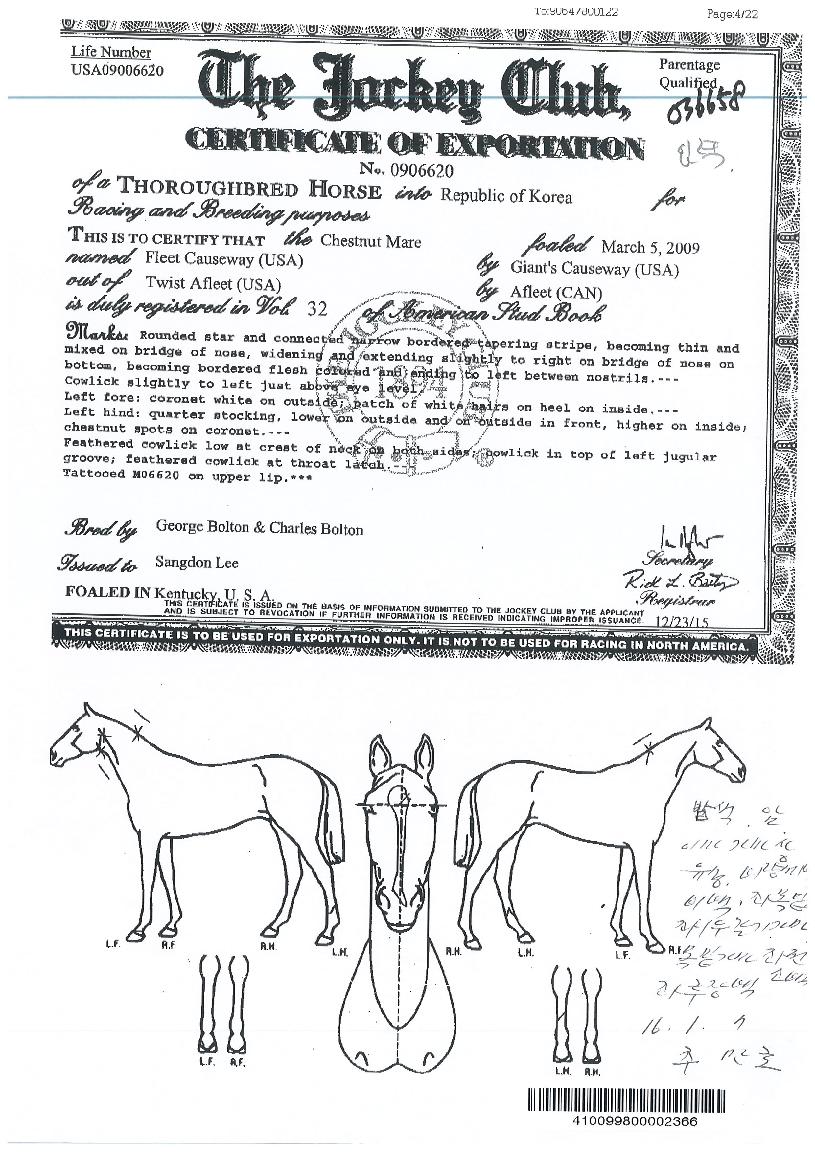 Page:4/22
Life Number
USA09006620
Parentage
Qualified
036658
The Jockey Club,
CERTIFICATE OF EXPORTATION
No. 0906620
of a THOROUGHBRED HORSE into Republic of Korea for
Racing and Breeding purposes
THIS IS TO CERTIFY THAT the Chestnut Mare foaled March 5, 2009
named Fleet Causeway (USA) by Giant's Causeway (USA)
out of Twist Afleet (USA) by Afleet (CAN)
is duly registered in Vol. 32 of American Stud Book
Marks: Rounded star and connected narrow bordered tapering stripe, becoming thin and
mixed on bridge of nose, widening and extending slightly to right on bridge of nose on
bottom, becoming bordered flesh colored and ending to left between nostrils.---
Cowlick slightly to left just above eye level.
Left fore: coronet white on outside; patch of white hairs on heel on inside.---
Left hind: quarter stocking, lower on outside and on outside in front, higher on inside;
chestnut spots on coronet.---
Feathered cowlick low at crest of neck on both sides; cowlick in top of left jugular
groove; feathered cowlick at throat latch.--
Tattooed M06620 on upper lip.***
Bred by George Bolton & Charles Bolton
Issued to Sangdon Lee
Secretary
Registrar
FOALED IN Kentucky, U. S. A.
THIS CERTIFICATE IS ISSUED ON THE BASIS OF INFORMATION SUBMITTED TO THE JOCKEY CLUB BY THE APPLICANT
AND IS SUBJECT TO REVOCATION IF FURTHER INFORMATION IS RECEIVED INDICATING IMPROPER ISSUANCE. 12/23/15
THIS CERTIFICATE IS TO BE USED FOR EXPORTATION ONLY. IT IS NOT TO BE USED FOR RACING IN NORTH AMERICA.
L.F. R.F. R.H. L.H. R.H. L.H. L.F. R.F.
L.F. R.F. L.H. R.H.
16. 1. 7
410099800002366